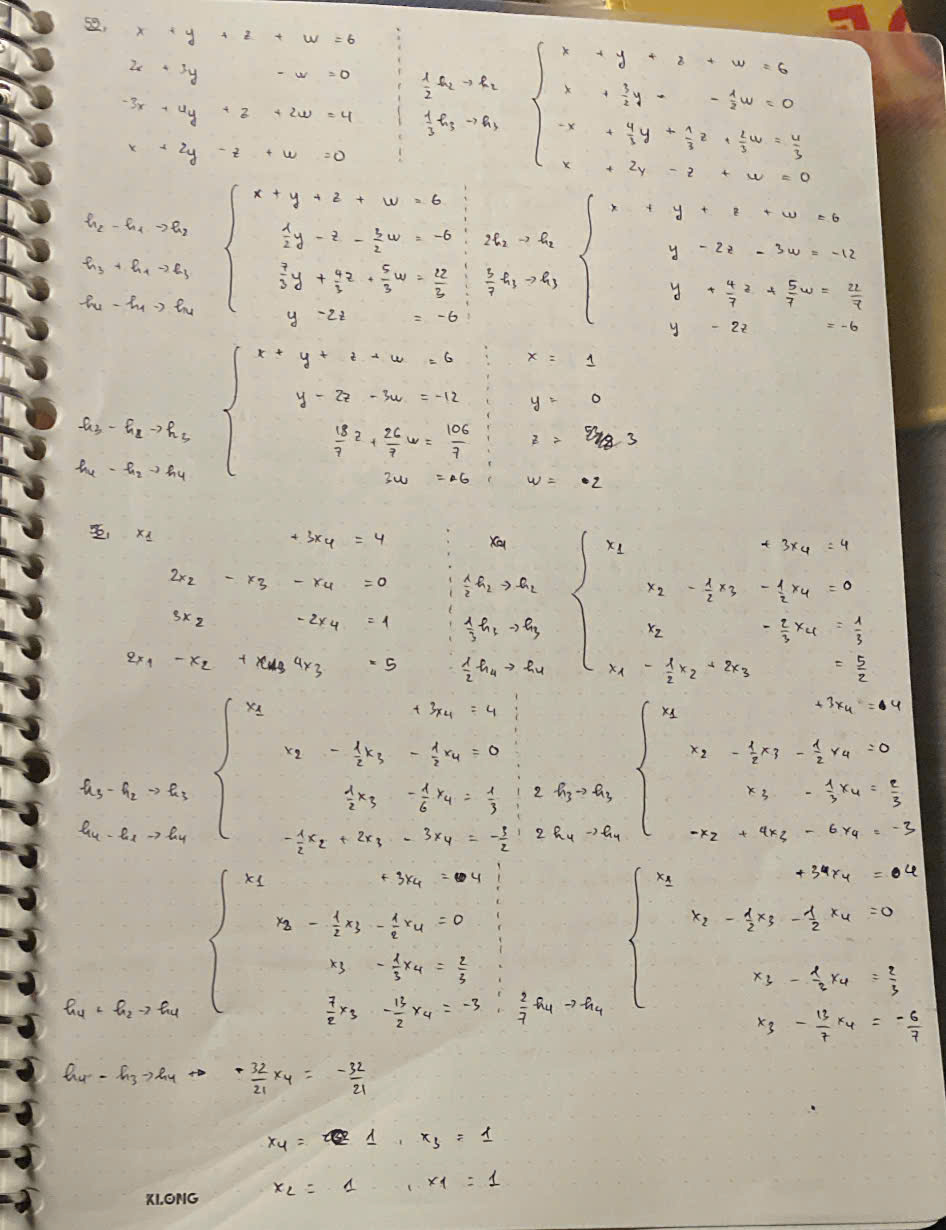 59. x + y + z + w = 6
2x + 3y - w = 0
-3x + 4y + z + 2w = 4
x + 2y - z + w = 0
1/2 h2 → h2
1/3 h3 → h3
x + y + z + w = 6
x + 3/2 y - - 1/2 w = 0
-x + 4/3 y + 1/3 z + 2/3 w = 4/3
x + 2y - z + w = 0
h2 - h1 → h2
h3 + h1 → h3
h4 - h1 → h4
x + y + z + w = 6
1/2 y - z - 3/2 w = -6
7/3 y + 4/3 z + 5/3 w = 22/3
y - 2z = -6
2h2 → h2
3/7 h3 → h3
x + y + z + w = 6
y - 2z - 3w = -12
y + 4/7 z + 5/7 w = 22/7
y - 2z = -6
h3 - h2 → h3
h4 - h2 → h4
x + y + z + w = 6
y - 2z - 3w = -12
18/7 z + 26/7 w = 106/7
3w = 6
x = 1
y = 0
z = 3
w = 2
x1 + 3x4 = 4
2x2 - x3 - x4 = 0
3x2 - 2x4 = 1
2x1 - x2 + 4x3 = 5
1/2 h2 → h2
1/3 h3 → h3
1/2 h4 → h4
x1 + 3x4 = 4
x2 - 1/2 x3 - 1/2 x4 = 0
x2 - 2/3 x4 = 1/3
x1 - 1/2 x2 + 2x3 = 5/2
h3 - h2 → h3
h4 - h1 → h4
x1 + 3x4 = 4
x2 - 1/2 x3 - 1/2 x4 = 0
1/2 x3 - 1/6 x4 = 1/3
-1/2 x2 + 2x3 - 3x4 = -3/2
2 h3 → h3
2 h4 → h4
x1 + 3x4 = 4
x2 - 1/2 x3 - 1/2 x4 = 0
x3 - 1/3 x4 = 2/3
-x2 + 4x3 - 6x4 = -3
h4 + h2 → h4
x1 + 3x4 = 4
x2 - 1/2 x3 - 1/2 x4 = 0
x3 - 1/3 x4 = 2/3
7/2 x3 - 13/2 x4 = -3
2/7 h4 → h4
x1 + 3x4 = 4
x2 - 1/2 x3 - 1/2 x4 = 0
x3 - 1/3 x4 = 2/3
x3 - 13/7 x4 = -6/7
h4 - h3 → h4 → - 32/21 x4 = -32/21
x4 = 1 , x3 = 1
x2 = 1 , x1 = 1
KLONG